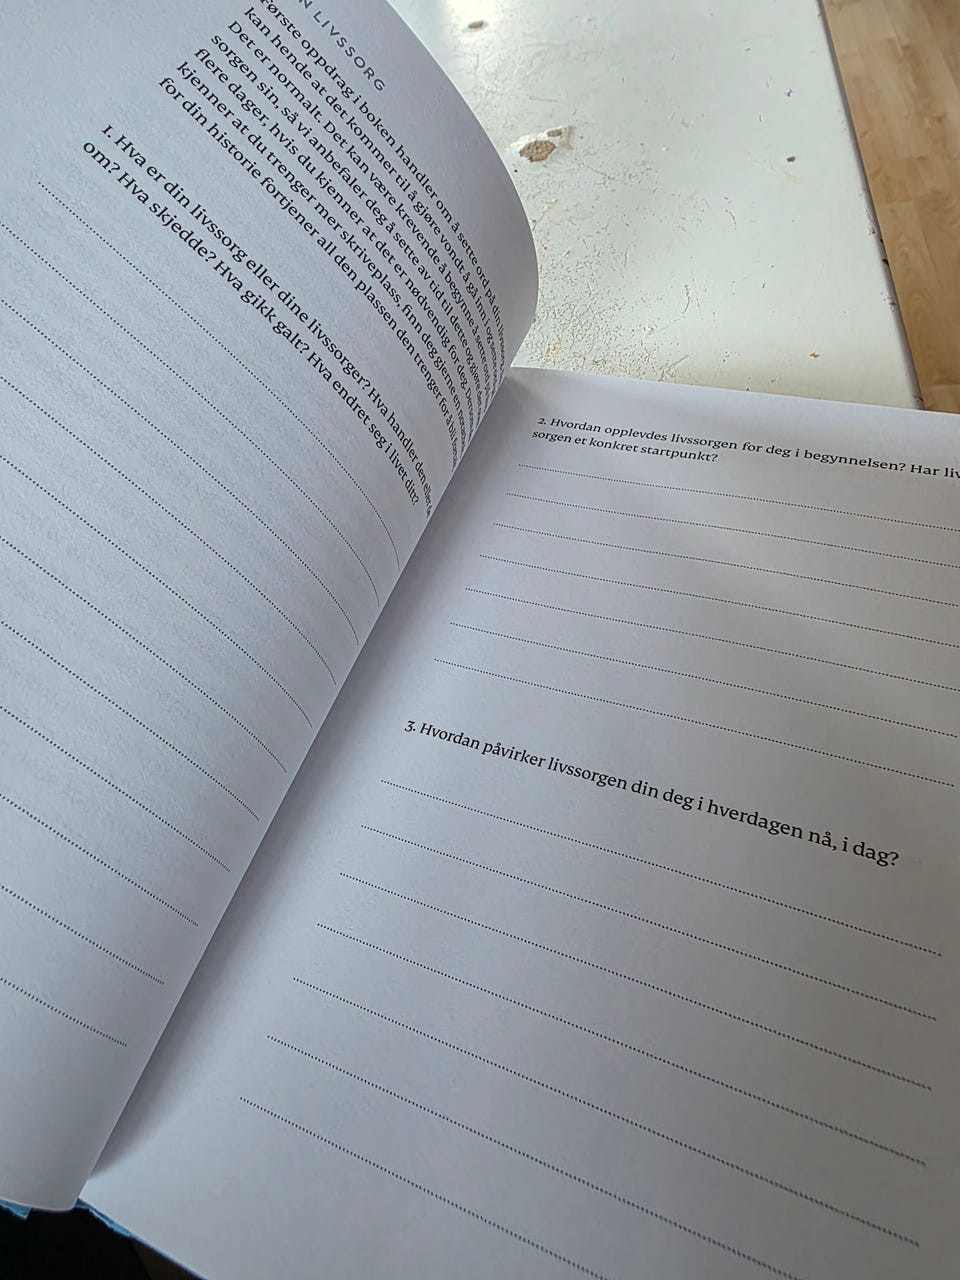 N LIVSSORG
Første oppdrag i boken handler om å sette ord på din livssorg.
kan hende at det kommer til å gjøre vondt å gå inn i og sette
Det er normalt. Det kan være krevende å begynne å sette ord på
sorgen sin, så vi anbefaler deg å sette av tid til dette og gjøre det
flere dager, hvis du kjenner at det er nødvendig for deg. Dersom
kjenner at du trenger mer skriveplass, finn deg gjerne en notatbok
for din historie fortjener all den plassen den trenger for å bli
1. Hva er din livssorg eller dine livssorger? Hva handler den eller
om? Hva skjedde? Hva gikk galt? Hva endret seg i livet ditt?
2. Hvordan opplevdes livssorgen for deg i begynnelsen? Har liv
sorgen et konkret startpunkt?
3. Hvordan påvirker livssorgen din deg i hverdagen nå, i dag?